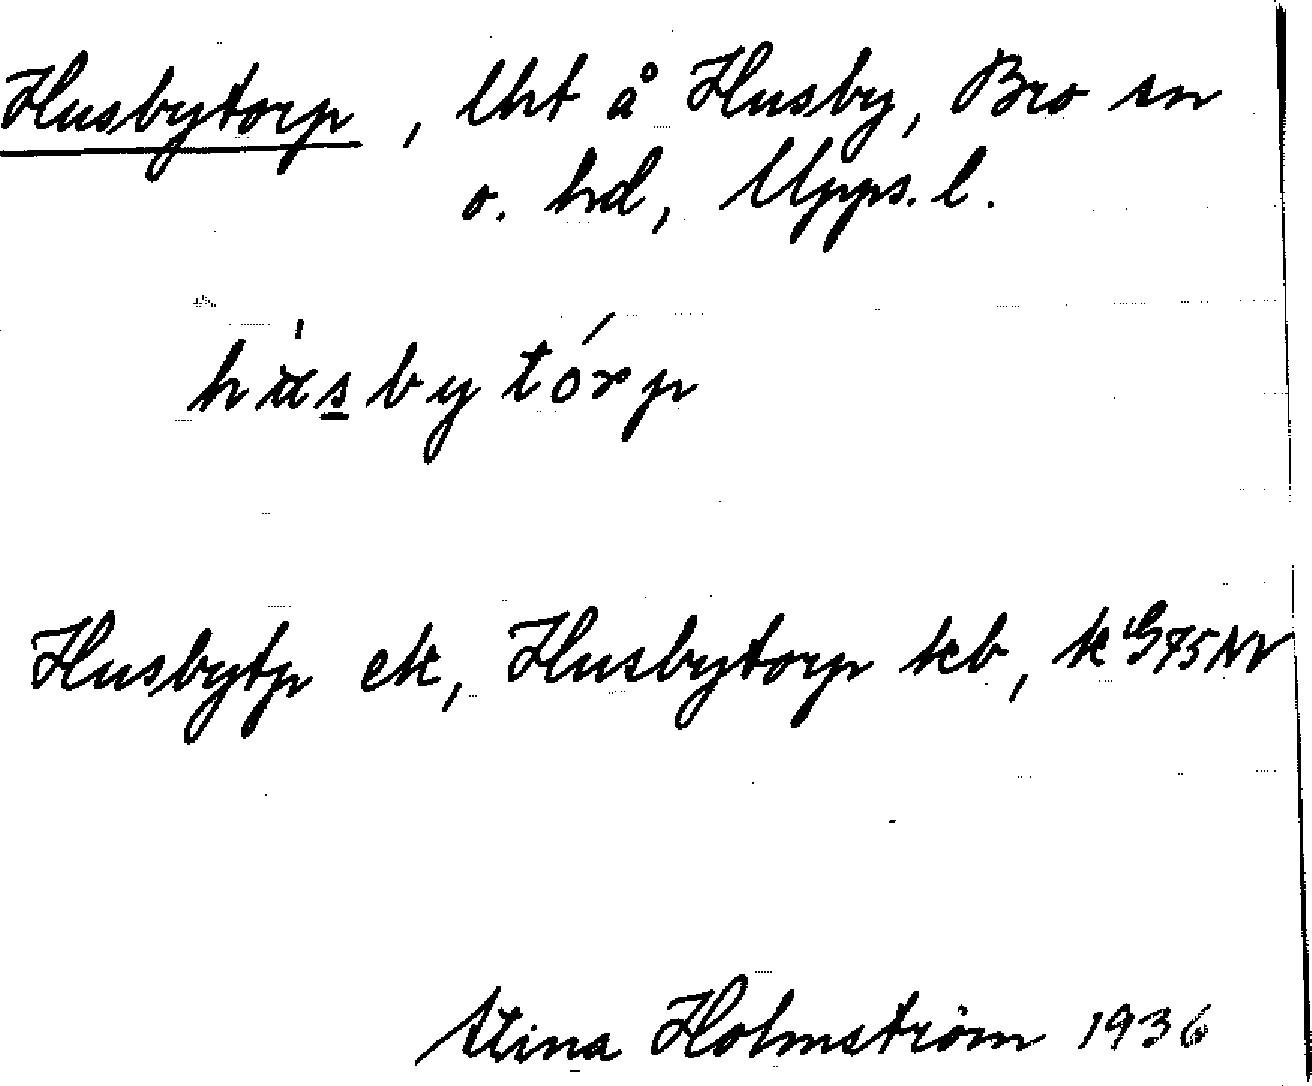 Husbytorp, lht å Husby, Bro sn
o. hd, Upps. l.
husbytórp
Husbytp ek, Husbytorp kb, k G75NV
Stina Holmström 1936